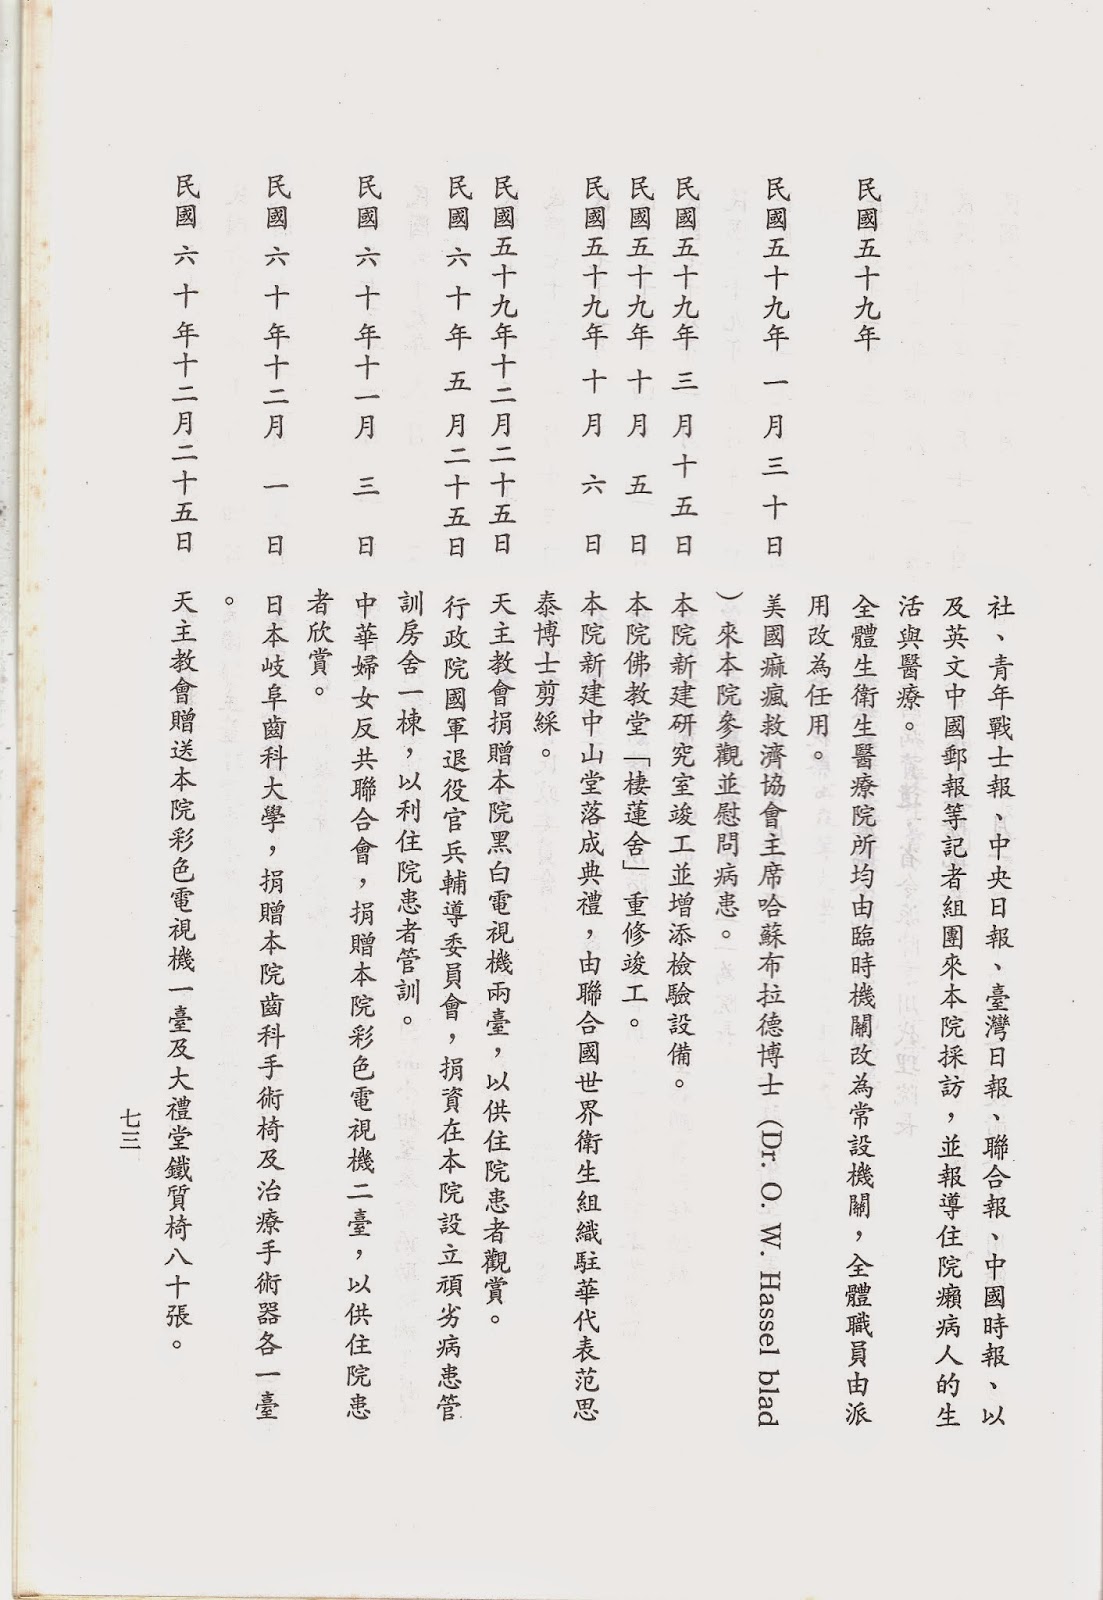 社、青年戰士報、中央日報、臺灣日報、聯合報、中國時報、以
及英文中國郵報等記者組團來本院採訪，並報導住院癩病人的生
活與醫療。
民國五十九年 全體生衛生醫療院所均由臨時機關改為常設機關，全體職員由派
用改為任用。
民國五十九年 一 月 三 十 日 美國痲瘋救濟協會主席哈蘇布拉德博士 (Dr. O. W. Hassel blad
）來本院參觀並慰問病患。
民國五十九年 三 月 十 五 日 本院新建研究室竣工並增添檢驗設備。
民國五十九年 十 月 五 日 本院佛教堂「棲蓮舍」重修竣工。
民國五十九年 十 月 六 日 本院新建中山堂落成典禮，由聯合國世界衛生組織駐華代表范思
泰博士剪綵。
民國五十九年十二月二十五日 天主教會捐贈本院黑白電視機兩臺，以供住院患者觀賞。
民國 六 十 年 五 月二十五日 行政院國軍退役官兵輔導委員會，捐資在本院設立頑劣病患管
訓房舍一棟，以利住院患者管訓。
民國 六 十 年十一月 三 日 中華婦女反共聯合會，捐贈本院彩色電視機二臺，以供住院患
者欣賞。
民國 六 十 年十二月 一 日 日本岐阜齒科大學，捐贈本院齒科手術椅及治療手術器各一臺
。
民國 六 十 年十二月二十五日 天主教會贈送本院彩色電視機一臺及大禮堂鐵質椅八十張。
七三